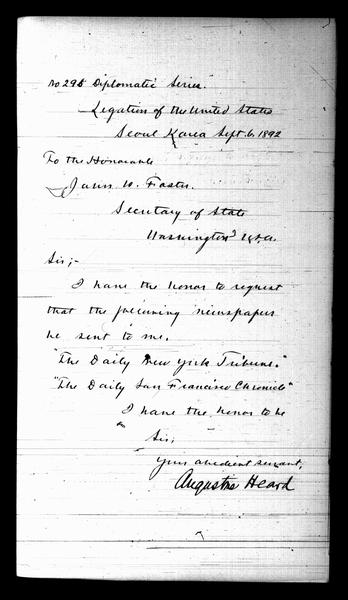 No 295 Diplomatic Series.
Legation of the United States
Seoul Korea Sept. 6, 1892
To the Honorable
John W. Foster.
Secretary of State
Washington U.S.A.
Sir;-
I have the honor to request
that the following newspapers
be sent to me.
"The Daily New York Tribune."
"The Daily San Francisco Chronicle"
I have the honor to be
Sir;
Your obedient servant,
Augustine Heard